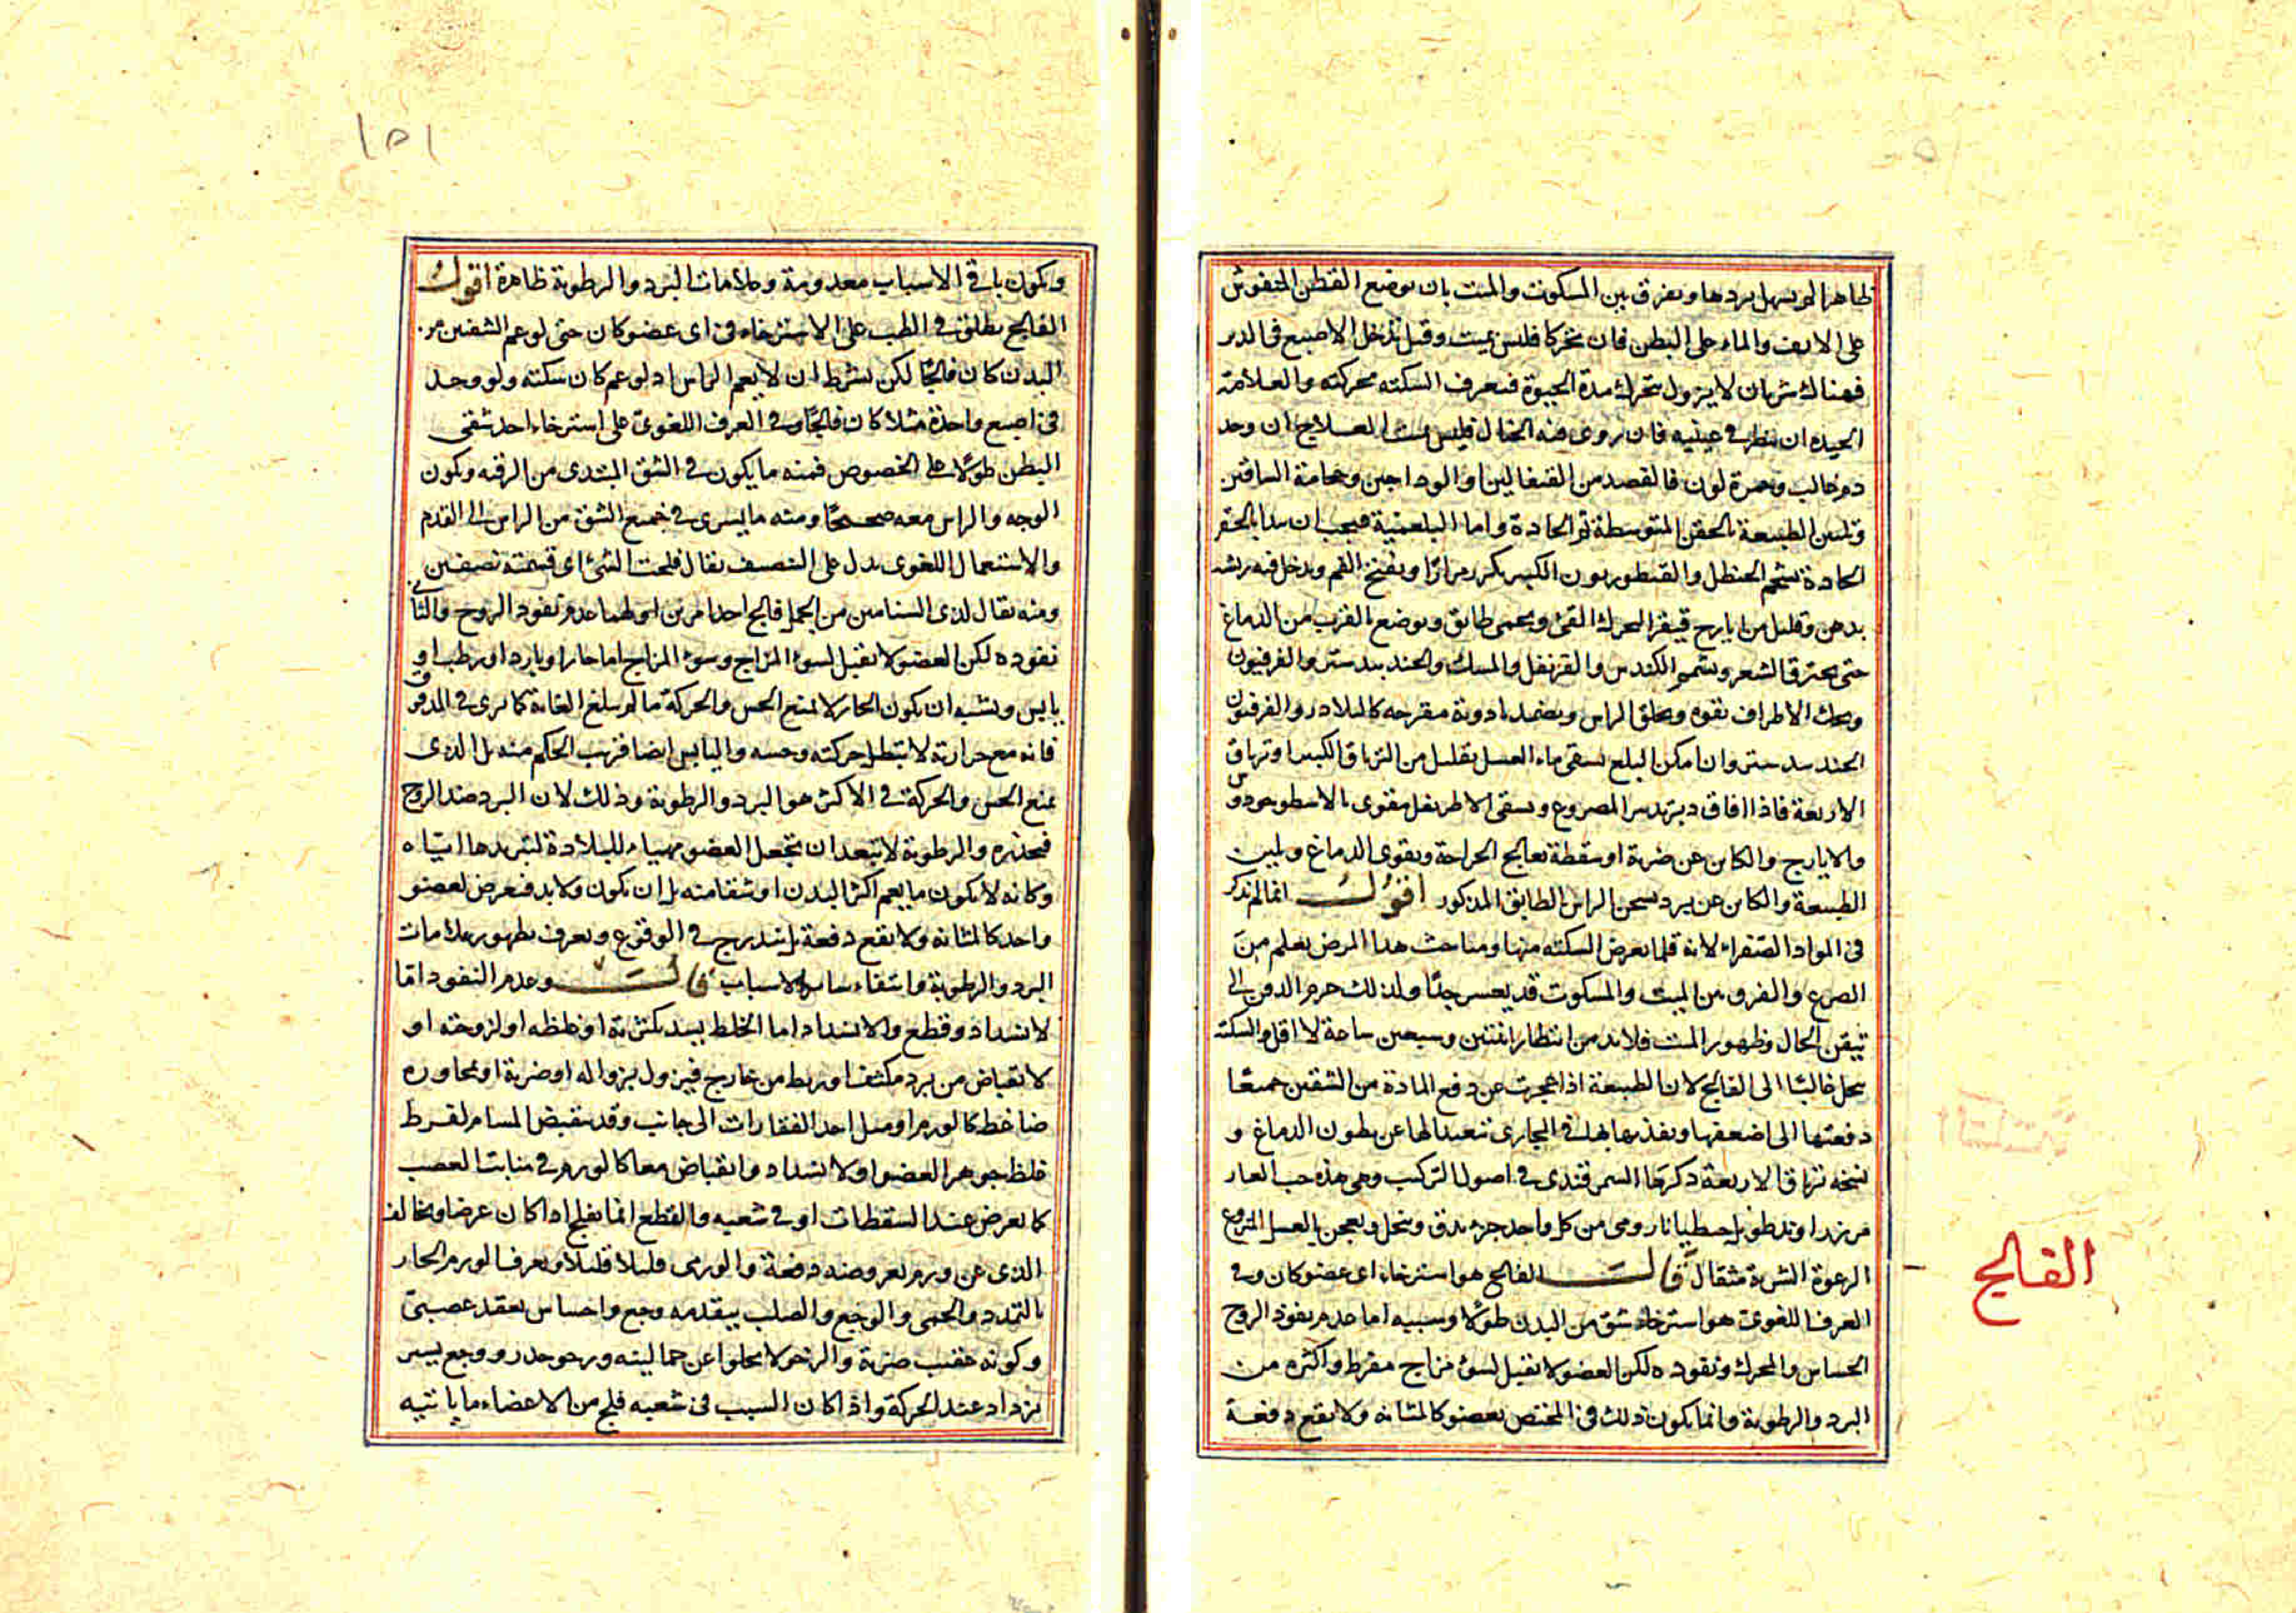 ظاهرا لم يسهل بردها ويفرق بين المسكوت والميت بان يوضع القطن المنفوش
على الانف والماء على البطن فان تحركا فليس بميت وقيل تدخل الاصبع في الدبر
فهناك شريان لا يزول يتحرك مدة الحيوة فتعرف السكته بحركته والعلامة
الجيده ان ينظر في عينيه فان روى فيه الخيال فليس بميت العلاج ان وجد
دم غالب وحمرة لون فالفصد من القيفالين او الوداجين وحجامة الساقين
وتليين الطبيعة بالحقن المتوسطة ثم الحادة واما البلغمية فيجب ان يبدا بالحقن
الحادة بشحم الحنظل والقنطوريون الكبير يكرر مرارا ويفتح الفم ويدخل فيه ريشه
بدهن وقليل من ايارج فيقرا ليحرك القئ ويحمى طابق ويوضع بالقرب من الدماغ
حتى يحترق الشعر ويشمو الكندس والقرنفل والمسك والجندبيدستر والفرفيون
ويدلك الاطراف بقوه ويحلق الراس ويضمد بادوية مقرحه كالبلادر والفرفيون
الجندبيدستر وان امكن البلع يسقى ماء العسل بقليل من الترياق الكبير او ترياق
الاربعة فاذا افاق دبر تدبير المصروع ويسقى الاطريفل مقوى بالاسطوخودوس
والايارج والكاين عن ضربة او سقطة يعالج الجراحة ويقوى الدماغ ويلين
الطبيعة والكاين عن برد يسخن الراس بالطابق المذكور اقول انما لم يذكر
في المواد الصفراء لانه قلما يعرض السكته منها ومباحث هذا المرض يعلم من
الصرع والفرق بين الميت والمسكوت قد يعسر جدا ولذلك حرم الدفن الى
تيقن الحال وظهور الميت فلابد من انتظار اثنتين وسبعين ساعة لا اقل والسكته
يحل غالبا الى الفالج لان الطبيعة اذا عجزت عن دفع المادة من الشقين جميعا
دفعتها الى اضعفهما ونفذ بها في المجارى تبعيدا لها عن بطون الدماغ و
نسخه ترياق الاربعة ذكرها السمرقندى في اصول التركيب وهى هذه حب الغار
مر زراوند طويل جنطيانا رومى من كل واحد جزء يدق وينخل ويعجن بالعسل المنزوع
الرغوة الشربة مثقال قال الفالج هو استرخاء اى عضو كان وفى
العرف اللغوى هو استرخاء شق من البدن طولا وسببه اما عدم نفوذ الروح
الحساس والمحرك ونفوذه لكن العضو لا يقبل لسوء مزاج مفرط واكثره من
البرد والرطوبة وانما يكون ذلك في المختص بعضو كالمثانه ولا يقع دفعة
الفالج
١٥١
ويكون باقى الاسباب معدومة وعلامات البرد والرطوبة ظاهرة اقول
الفالج يطلق في الطب على الاسترخاء في اى عضو كان حتى لو عم الشقين من
البدن كان فالجا لكن بشرط ان لا يعم الراس اذ لو عم كان سكته ولو وجد
في اصبع واحدة مثلا كان فالجا وفى العرف اللغوى على استرخاء احد شقى
البطن طولا على الخصوص فمنه ما يكون في الشق المبتدى من الرقبه ويكون
الوجه والراس معه صحيحا ومنه ما يسرى في جميع الشق من الراس الى القدم
والاستعمال اللغوى يدل على التنصيف يقال فلجت الشئ اى قسمته نصفين
ومنه يقال لذى السنامين من الجمل فالج احد امرين اولهما عدم نفوذ الروح والثانى
نفوذه لكن العضو لا يقبل لسوء المزاج وسوء المزاج اما حار او بارد او رطب او
يابس ويشبه ان يكون الحار لا يمنع الحس والحركة ما لم يبلغ الغاية كما ترى في المدقوق
فانه مع حرارته لا يبطل حركته وحسه واليابس ايضا قريب الحكم منه بل الذى
يمنع الحس والحركة في الاكثر هو البرد والرطوبة وذلك لان البرد ضد الروح
فيخدره والرطوبة لا تبعد ان تجعل العضو مهياء للبلادة لتبريدها اياه
وكانه لا يكون ما يعم اكثر البدن او شقا منه بل ان يكون ولابد فيعرض لعضو
واحد كالمثانه ولا يقع دفعة بل يتدرج في الوقوع ويعرف بظهور علامات
البرد والرطوبة وانتفاء ساير الاسباب قال وعدم النفوذ اما
لانسداد وقطع والانسداد اما الخلط يسد بكثرته او غلظه او لزوجته او
لانقباض من برد مكثف او ربط من خارج فيزول بزواله او ضربة او مجاوره
ضاغط كالورم او ميل احد الفقارات الى جانب وقد ينقبض المسام لفرط
غلظ جوهر العضو او لانسداد وانقباض معا كالورم في منابت العصب
كما يعرض عند السقطات او في شعبه والقطع انما يفلج اذا كان عرضا ويخالف
الذى عن ورم بعروضه دفعة والورمى قليلا قليلا ويعرف الورم الحار
بالتمدد والحمى والوجع والصلب بتقدمه وجع واحساس بعقد عصبى
وكونه عقيب ضربة والرخو لا يخلوا عن حما لينه ورخو خدر ووجع يسير
يزداد عند الحركة واذا كان السبب في شعبه فلج من الاعضاء ما ياتيه